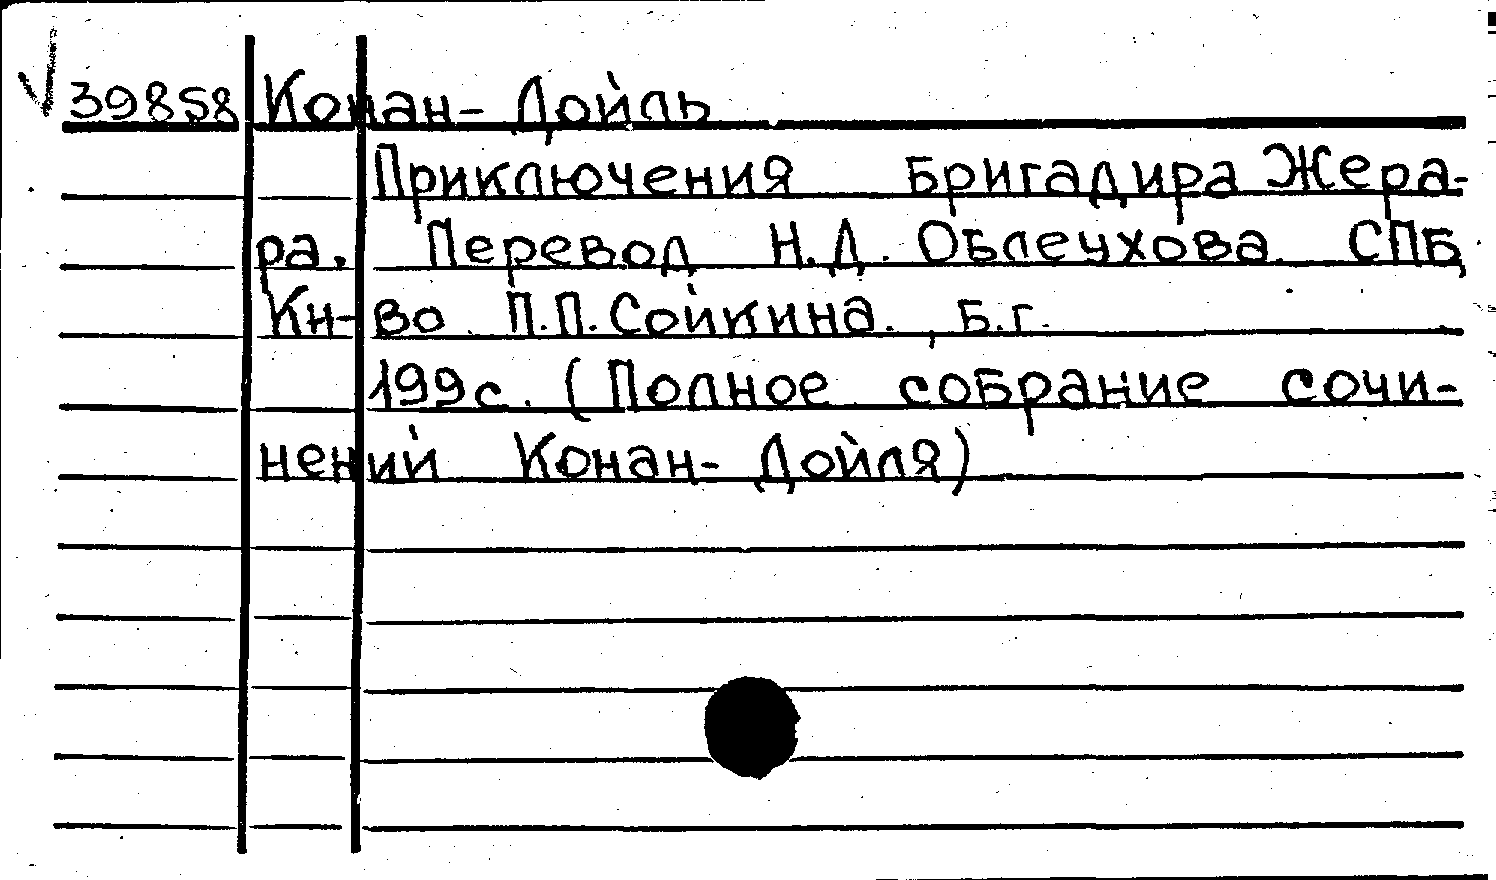 39858 Конан-Дойль
Приключения Бригадира Жера-
ра. Перевод Н.Д. Облеухова. СПБ,
Кн-во П.П.Сойкина., Б.г.
199с. (Полное собрание сочи-
нений Конан-Дойля)